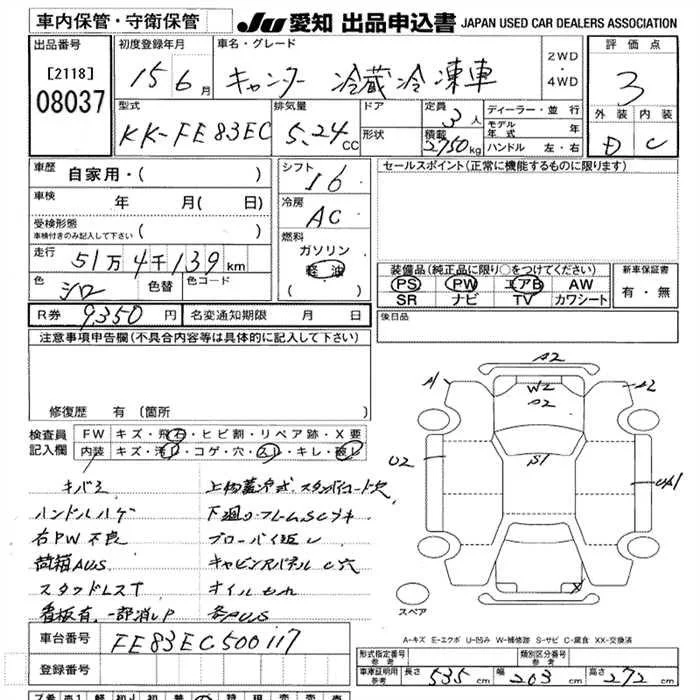 車内保管・守衛保管
JU 愛知 出品申込書 JAPAN USED CAR DEALERS ASSOCIATION
出品番号
[2118]
08037
初度登録年月
15 6 月
車名・グレード
キャンター 冷蔵冷凍車
2WD
・
4WD
評価点
3
外装 内装
D C
型式
KK-FE83EC
排気量
5.24 CC
ドア
形状
定員
3 人
積載
2750 kg
ディーラー・並行
モデル年式 年
ハンドル 左・右
車歴
自家用・( )
車検 年 月( 日)
受検形態
(車検付きのみ記入して下さい)
走行 51万4千139 km
色 シロ 色替 色コード
シフト
I6
冷房
AC
燃料
ガソリン
軽油
( )
セールスポイント(正常に機能するものに限ります)
装備品(純正品に限り○をつけてください)
PS PW エアB AW
SR ナビ TV カワシート
新車保証書
有・無
R券 9,350 円 名変通知期限 月 日
後日品
注意事項申告欄(不具合内容等は具体的に記入して下さい)
修復歴 有 (箇所
検査員
記入欄
FW キズ・飛石・ヒビ割・リペア跡・X要
内装 キズ・汚れ・コゲ・穴・スレ・キレ・破レ
キバミ
ハンドルハゲ
右PW不良
荷箱AUS
スタッドレスT
看板有、一部消しP
下廻り・フレームSCサキ
オイルもれ
各所US
A2
W2
A2
A
A2
U2
S1
UA1
X
スペア
A-キズ E-エクボ U-凹み W-補修跡 S-サビ C-腐食 XX-交換済
車台番号 FE83EC500117
登録番号
形式指定番号
参考
類別区分番号
参考
車庫証明用
参考
長さ 535 cm 幅 203 cm 高さ 272 cm